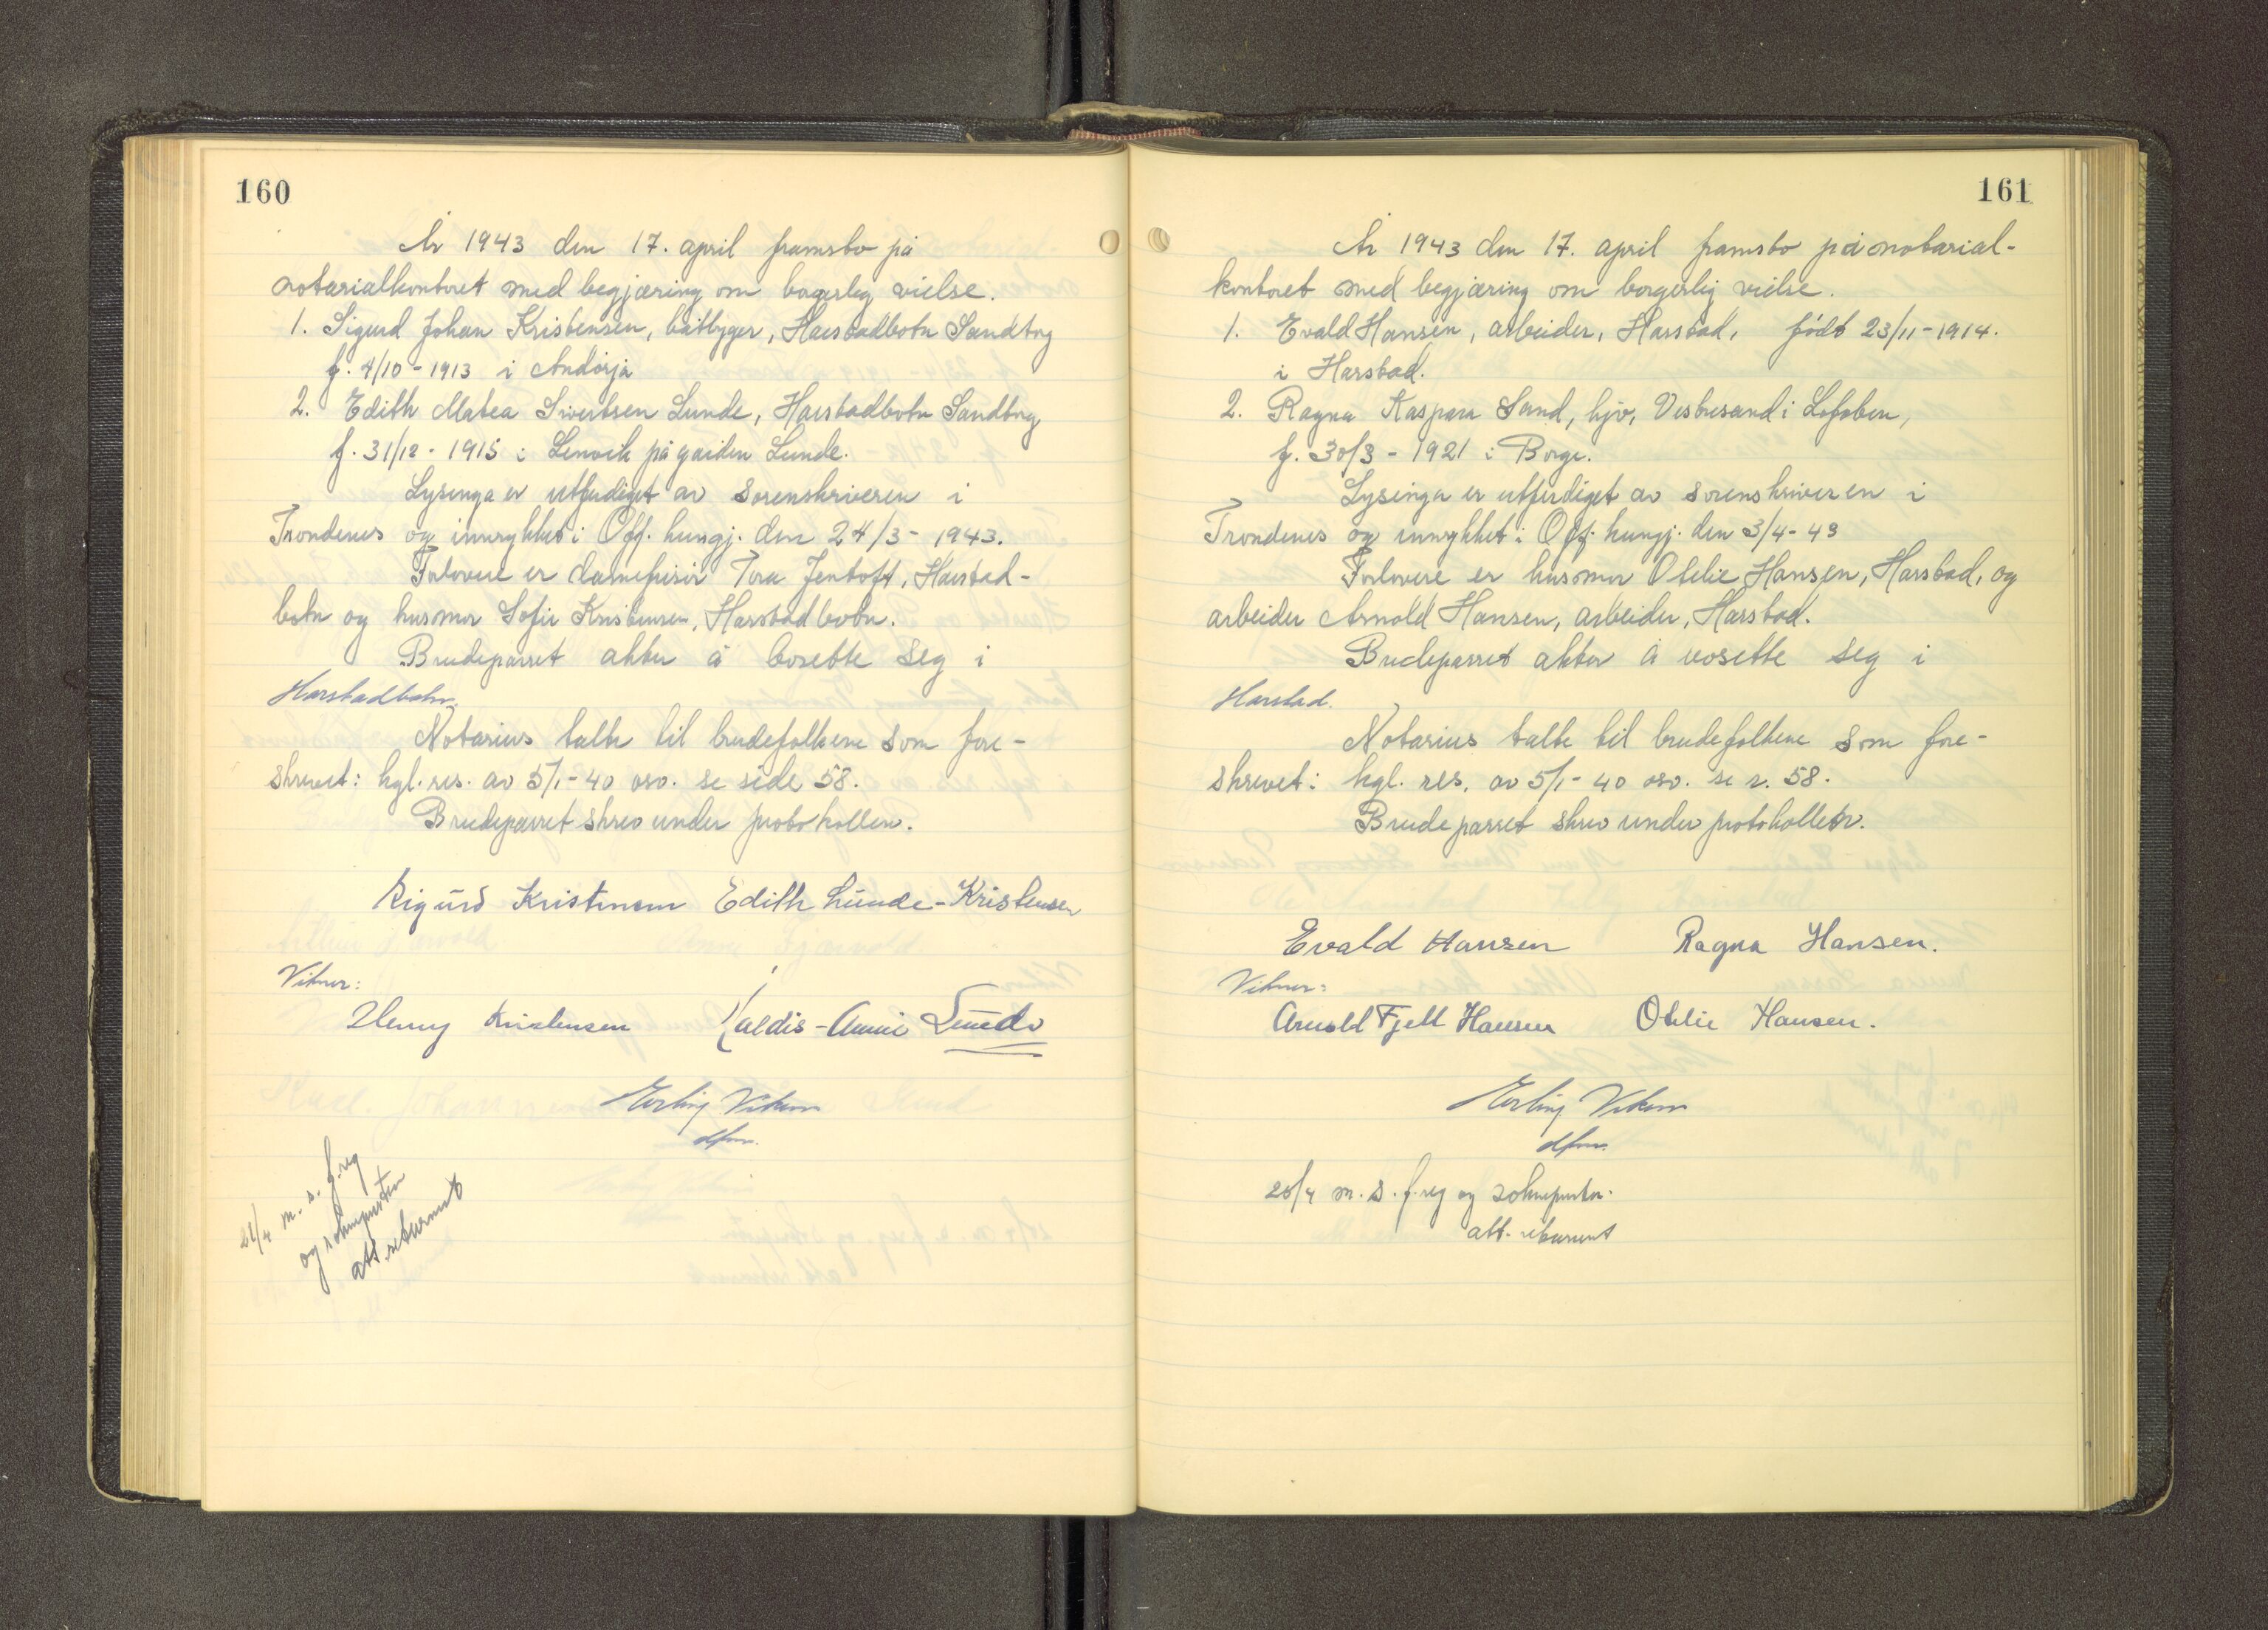 160
År 1943 den 17. april framsto på
notarialkontoret med begjæring om borgerlig vielse.
1. Sigurd Johan Kristensen, båtbygger, Harstadbotn Sandtorg
f. 4/10 - 1913 i Andørja
2. Edith Matea Sivertsen Lunde, Harstadbotn Sandtorg
f. 31/12 - 1915 i Lenvik på garden Lunde.
Lysinga er utferdiget av sorenskriveren i
Trondenes og innrykket i Off. kungj. den 24/3 - 1943.
Forlovere er damefrisør Tora Jentoft, Harstad-
botn og husmor Sofie Kristensen, Harstadbotn.
Brudeparret akter å bosette seg i
Harstadbotn.
Notarius talte til brudefolkene som fore-
skrevet: kgl. res. av 5/1 - 40 osv. se side 58.
Brudeparret skrev under protokollen.
Sigurd Kristensen Edith Lunde-Kristensen
Vitner:
Henny Kristensen Valdis-Annie Lunde
Erling Viken
dfm.
21/4 m. s. f.reg
og sokneprsten
att. returnert
161
År 1943 den 17. april framsto på notarial-
kontoret med begjæring om borgerlig vielse.
1. Evald Hansen, arbeider, Harstad, født 23/11 - 1914.
i Harstad.
2. Ragna Kaspara Sand, hjv, Vestresand i Lofoten,
f. 30/3 - 1921 i Borge.
Lysinga er utferdiget av sorenskriveren i
Trondenes og innrykket i Off. kungj. den 3/4 - 43
Forlovere er husmor Otelie Hansen, Harstad, og
arbeider Arnold Hansen, arbeider, Harstad.
Brudeparret akter å bosette seg i
Harstad.
Notarius talte til brudefolkene som fore-
skrevet: kgl. res. av 5/1 - 40 osv. se s. 58.
Brudeparret skrev under protokollen.
Evald Hansen Ragna Hansen.
Vitner:
Arnold Fjell Hansen Otelie Hansen.
Erling Viken
dfm.
20/4 m. s. f.reg og sokneprsten.
att. returnert